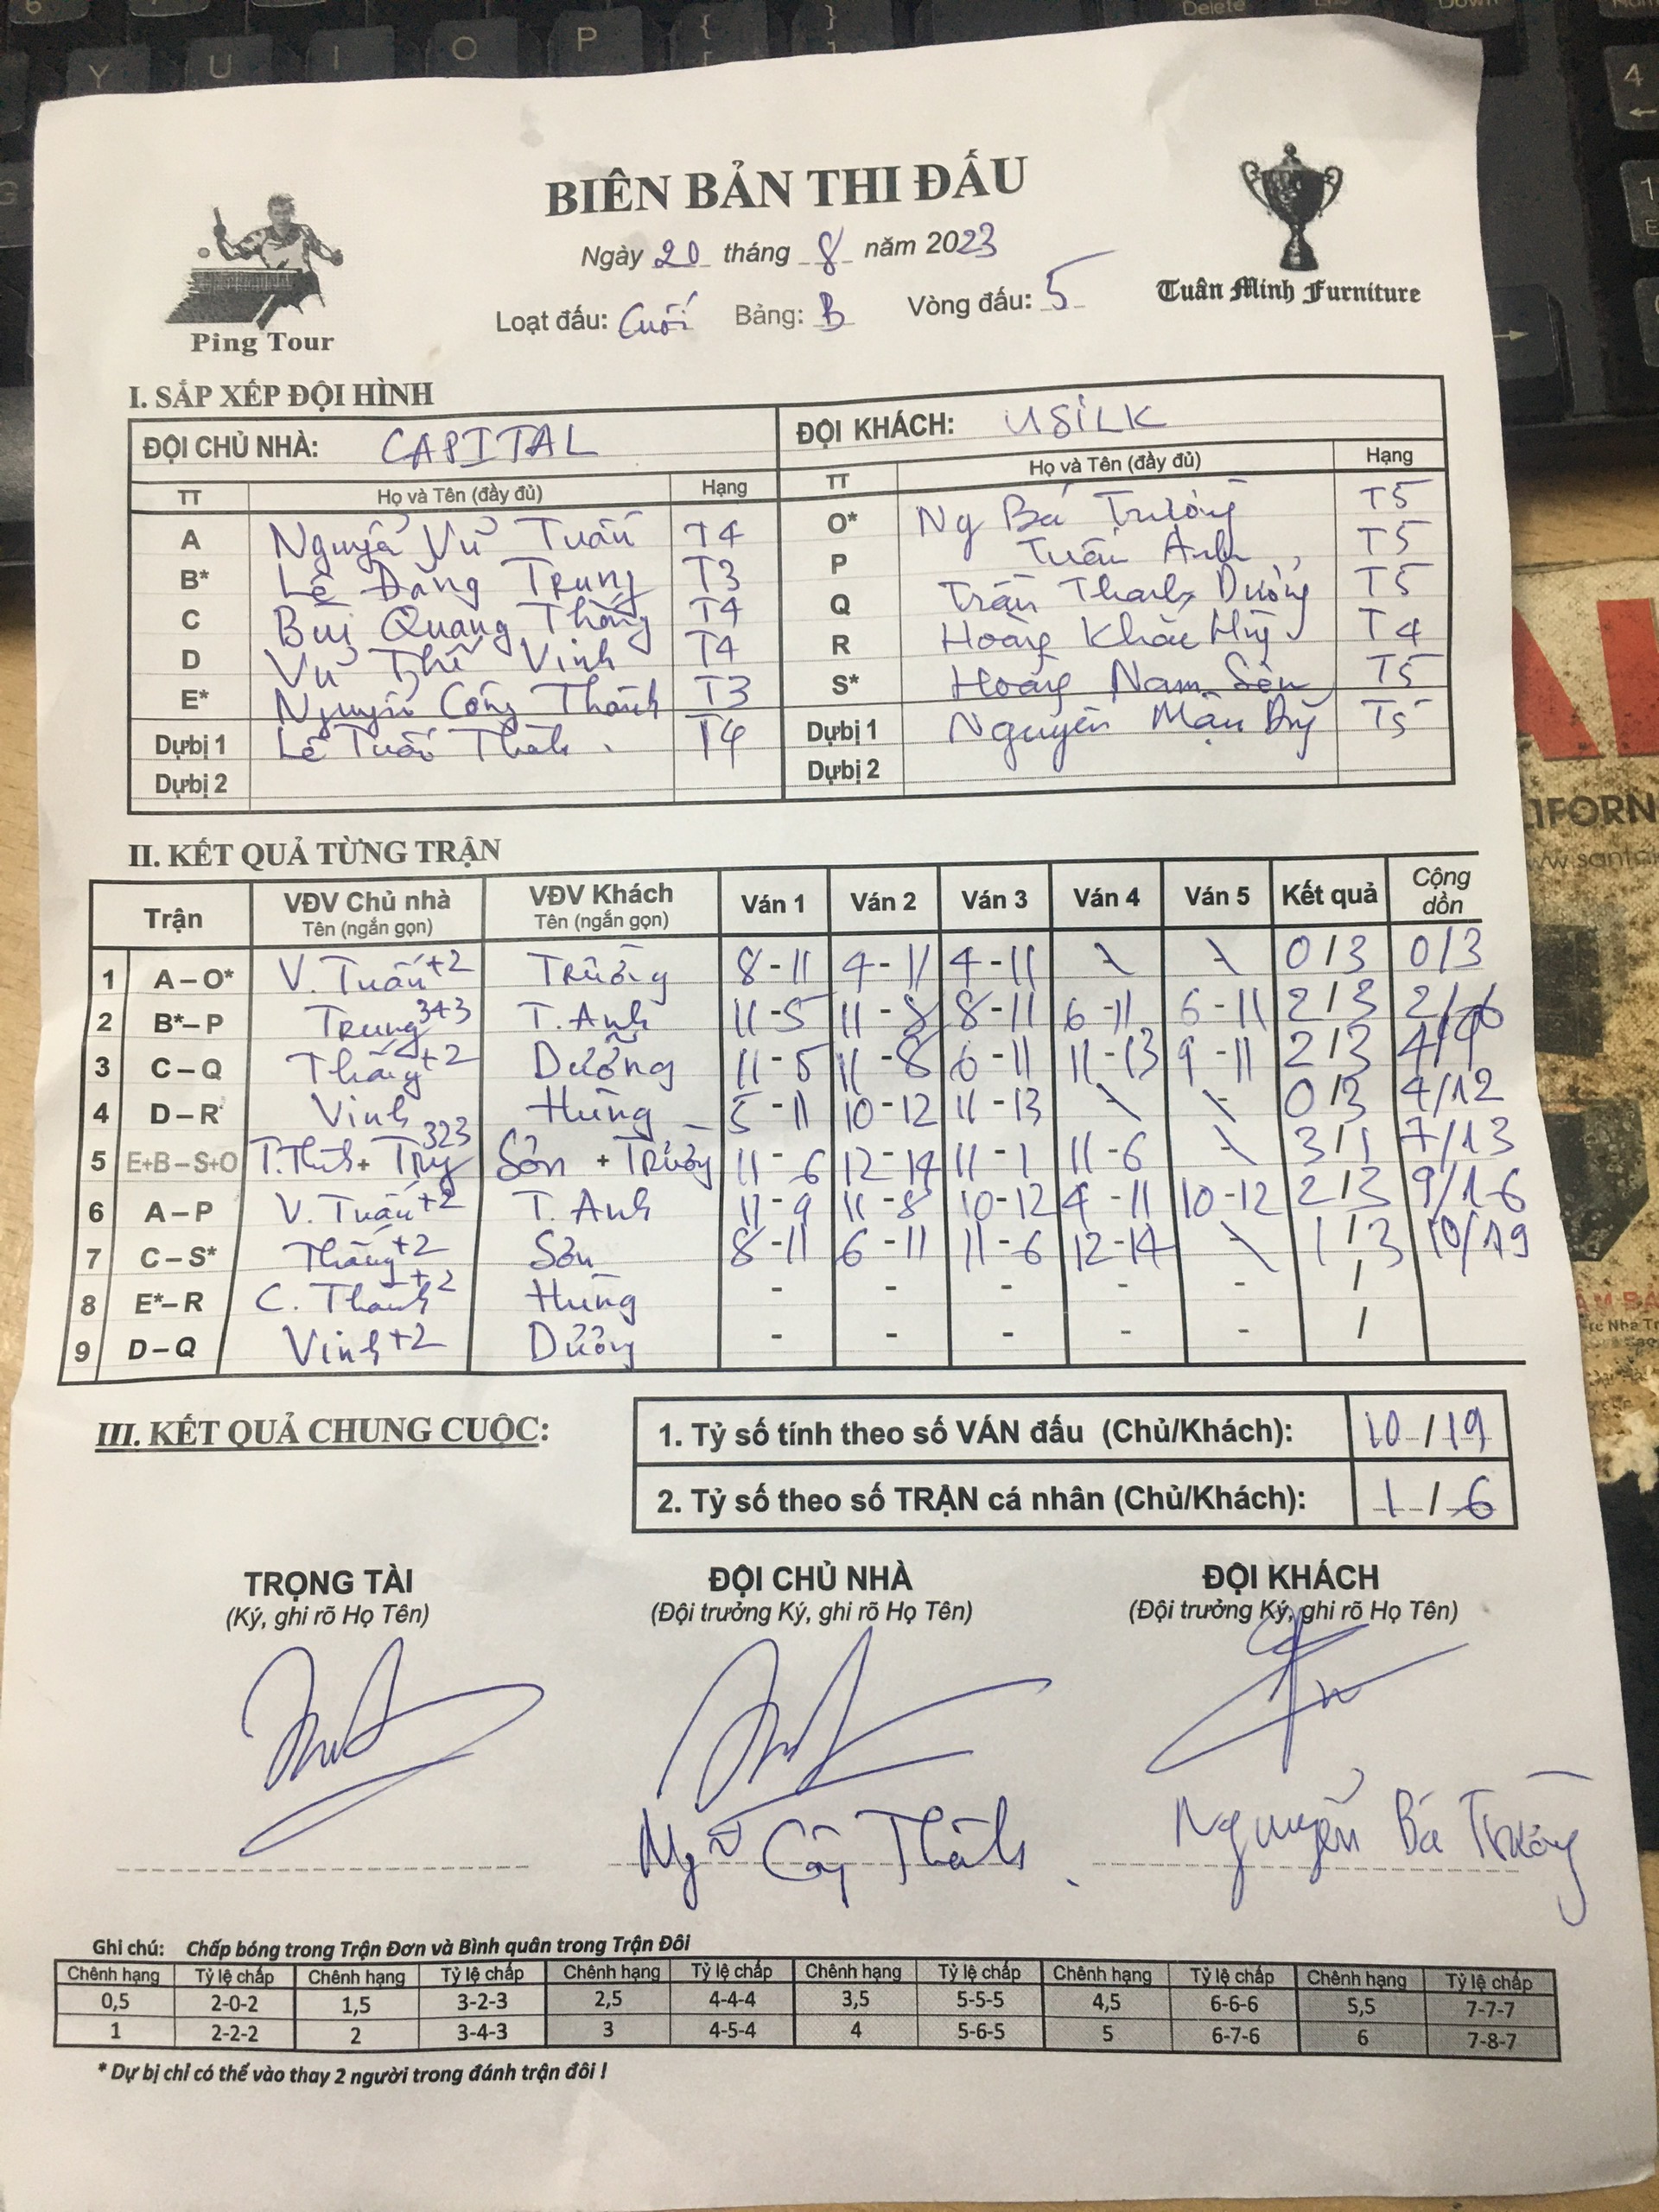 BIÊN BẢN THI ĐẤU
Ngày 20 tháng 8 năm 2023
Loạt đấu: Cuối Bảng: B Vòng đấu: 5
Ping Tour
Tuân Minh Furniture
I. SẮP XẾP ĐỘI HÌNH
ĐỘI CHỦ NHÀ: CAPITAL ĐỘI KHÁCH: USILK
TT Họ và Tên (đầy đủ) Hạng TT Họ và Tên (đầy đủ) Hạng
A Nguyễn Vũ Tuấn T4 O* Ng Bá Trường T5
B* Lê Đăng Trung T3 P Tuấn Anh T5
C Bùi Quang Thắng T4 Q Trần Thanh Dương T5
D Vũ Thế Vinh T4 R Hoàng Khắc Hùng T4
E* Nguyễn Công Thành T3 S* Hoàng Nam Sơn T5
Dựbị 1 Lê Tuấn T4 Dựbị 1 Nguyễn Mậu T5
Dựbị 2 Dựbị 2
II. KẾT QUẢ TỪNG TRẬN
Trận VĐV Chủ nhà Tên (ngắn gọn) VĐV Khách Tên (ngắn gọn) Ván 1 Ván 2 Ván 3 Ván 4 Ván 5 Kết quả Cộng dồn
1 A – O* V. Tuấn +2 Trường 8 - 11 4 - 11 4 - 11 \ \ 0 / 3 0/3
2 B* – P Trung 343 T. Anh 11 - 5 11 - 8 8 - 11 6 - 11 6 - 11 2 / 3 2/6
3 C – Q Thắng +2 Dương 11 - 5 11 - 8 6 - 11 11 - 13 9 - 11 2 / 3 4/9
4 D – R Vinh Hùng 5 - 11 10 - 12 11 - 13 \ \ 0 / 3 4/12
5 E+B – S+O + 323 Sơn + Trường 11 - 6 12 - 14 11 - 1 11 - 6 \ 3 / 1 7/13
6 A – P V. Tuấn +2 T. Anh 11 - 9 11 - 8 10 - 12 4 - 11 10 - 12 2 / 3 9/16
7 C – S* Thắng +2 Sơn 8 - 11 6 - 11 11 - 6 12 - 14 \ 1 / 3 10/19
8 E* – R C. Thành +2 Hùng - - - - - /
9 D – Q Vinh +2 Dương - - - - - /
III. KẾT QUẢ CHUNG CUỘC:
1. Tỷ số tính theo số VÁN đấu (Chủ/Khách): 10 / 19
2. Tỷ số theo số TRẬN cá nhân (Chủ/Khách): 1 / 6
TRỌNG TÀI ĐỘI CHỦ NHÀ ĐỘI KHÁCH
(Ký, ghi rõ Họ Tên) (Đội trưởng Ký, ghi rõ Họ Tên) (Đội trưởng Ký, ghi rõ Họ Tên)
Ng Công Thành Nguyễn Bá Trường
Ghi chú: Chấp bóng trong Trận Đơn và Bình quân trong Trận Đôi
Chênh hạng Tỷ lệ chấp Chênh hạng Tỷ lệ chấp Chênh hạng Tỷ lệ chấp Chênh hạng Tỷ lệ chấp Chênh hạng Tỷ lệ chấp Chênh hạng Tỷ lệ chấp
0,5 2-0-2 1,5 3-2-3 2,5 4-4-4 3,5 5-5-5 4,5 6-6-6 5,5 7-7-7
1 2-2-2 2 3-4-3 3 4-5-4 4 5-6-5 5 6-7-6 6 7-8-7
* Dự bị chỉ có thể vào thay 2 người trong đánh trận đôi !